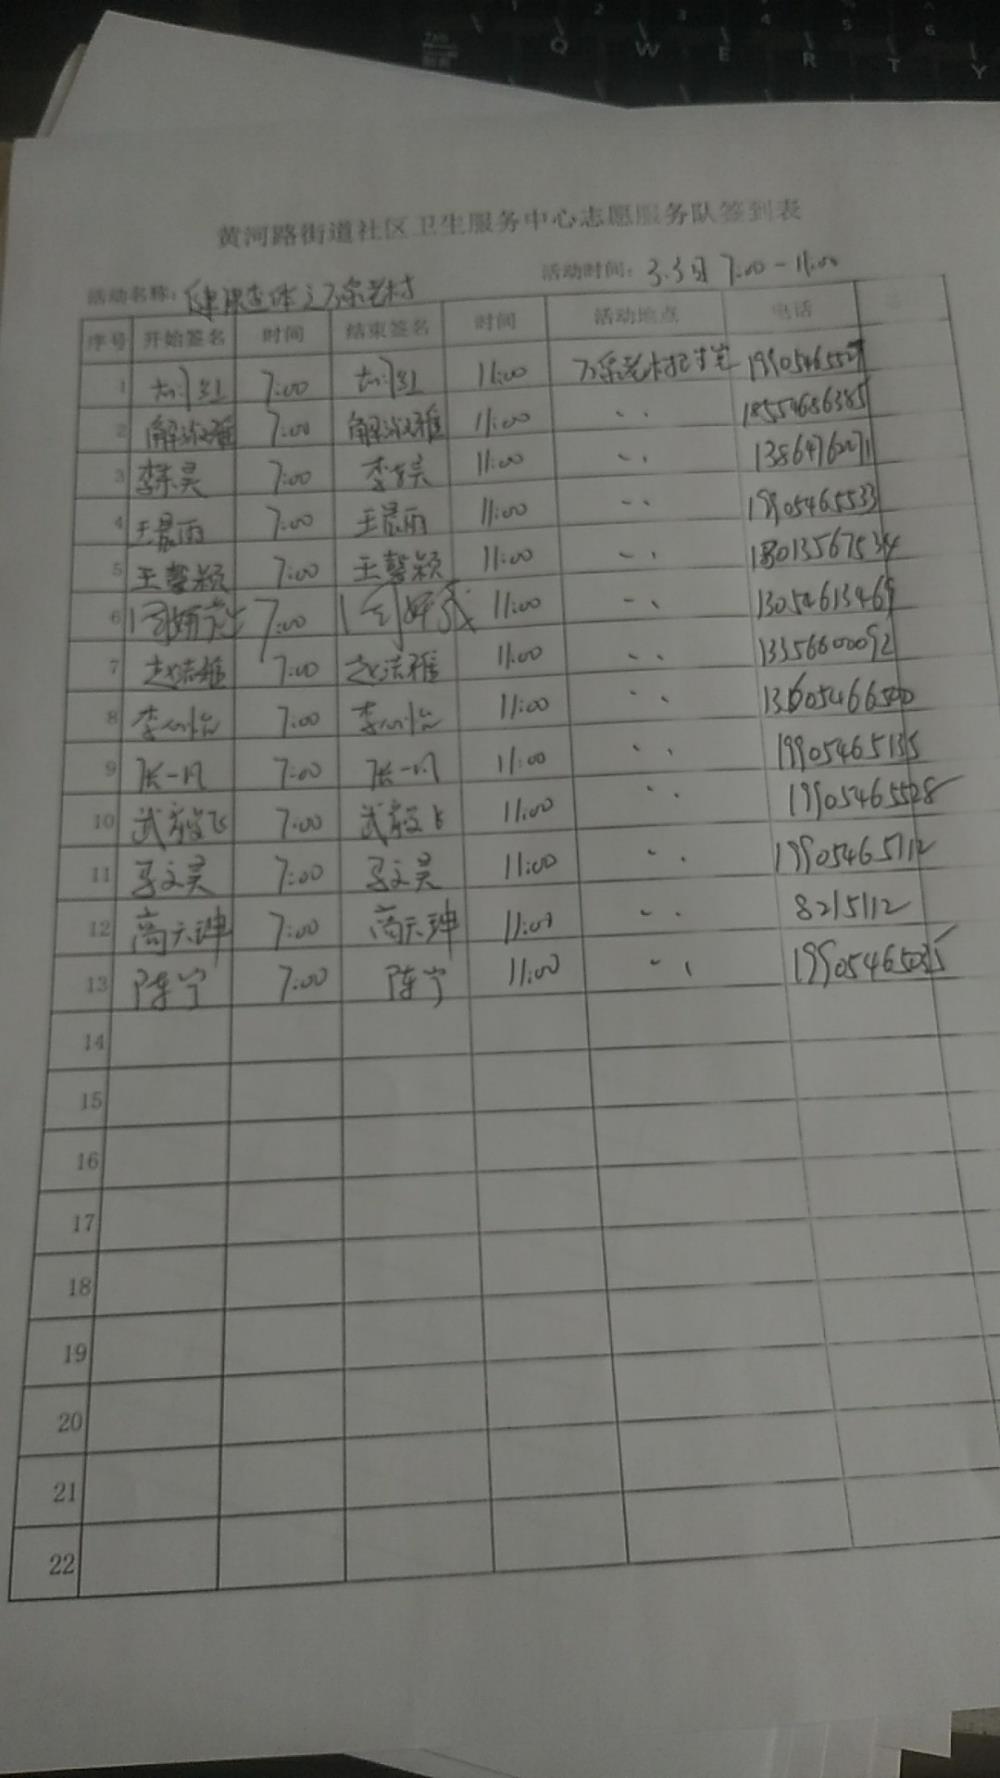 黄河路街道社区卫生服务中心志愿服务队签到表
活动名称: 活动时间: 3.3日 7:00-11:00
序号 开始签名 时间 结束签名 时间 活动地点 电话
1 刘红 7:00 刘红 11:00
2 解淑雅 7:00 解淑雅 11:00 18554686385
3 李昊 7:00 李昊 11:00 13864762271
4 王晨雨 7:00 王晨雨 11:00 19905465533
5 王馨颖 7:00 王馨颖 11:00
6 7:00 11:00 13054613469
7 赵洁雅 7:00 赵洁雅 11:00 13356600092
8 李心怡 7:00 李心怡 11:00
9 张一凡 7:00 张一凡 11:00 19905465135
10 武毅飞 7:00 武毅飞 11:00 19905465528
11 马文昊 7:00 马文昊 11:00 19905465112
12 商天珅 7:00 商天珅 11:00 8215112
13 陈宁 7:00 陈宁 11:00
14
15
16
17
18
19
20
21
22
Q W E R T Y